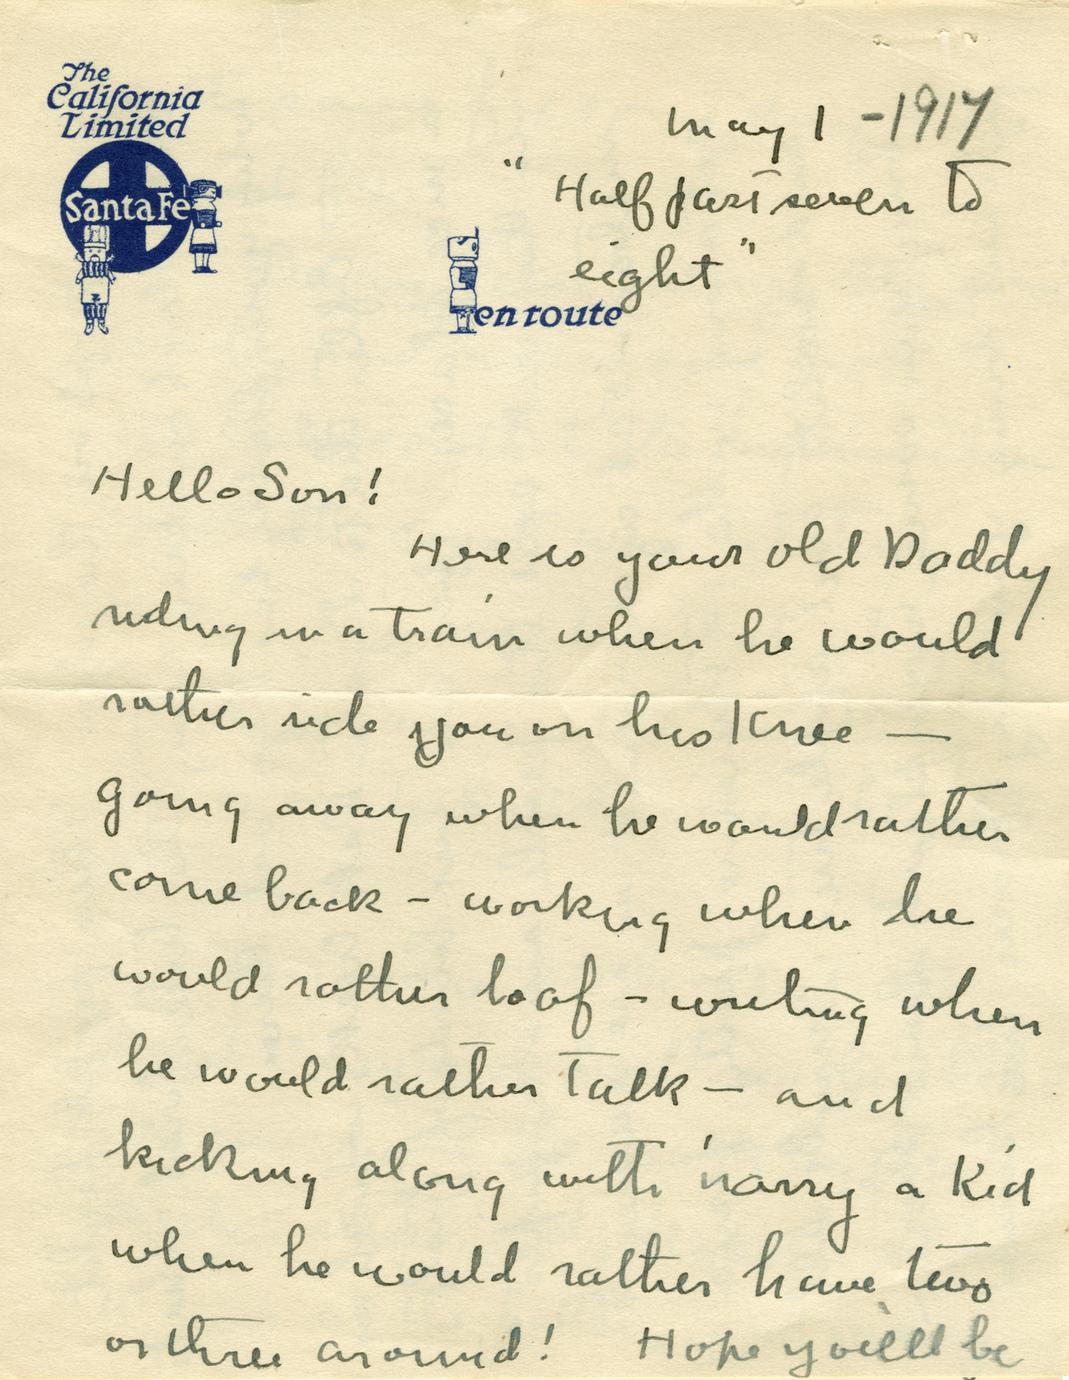 The
California
Limited
Santa Fe
May 1 - 1917
"Half past seven to
eight"
en route
Hello Son!
Here is your old Daddy
riding in a train when he would
rather ride you on his knee —
going away when he would rather
come back - working when he
would rather loaf - writing when
he would rather talk — and
kicking along with 'narry a kid
when he would rather have two
or three around! Hope you'll be